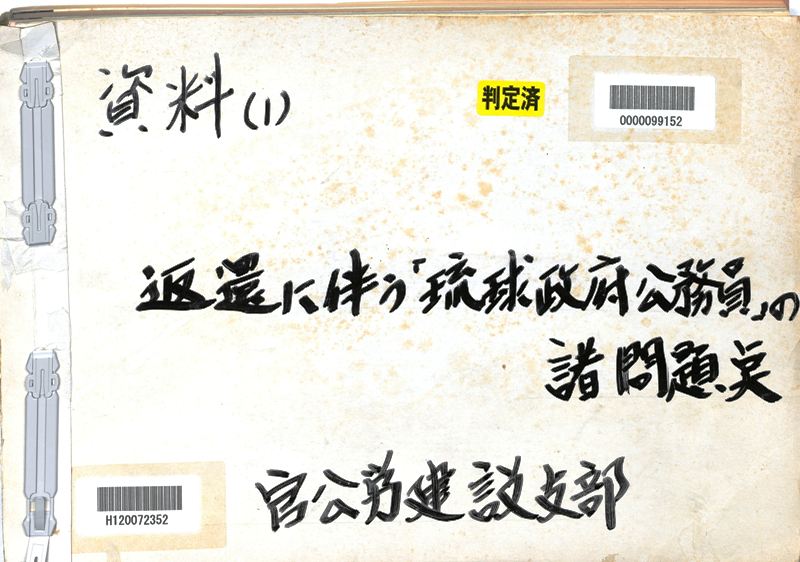 資料(1)
判定済
0000099152
返還に伴う「琉球政府公務員」の
諸問題点
官公労建設支部
H120072352